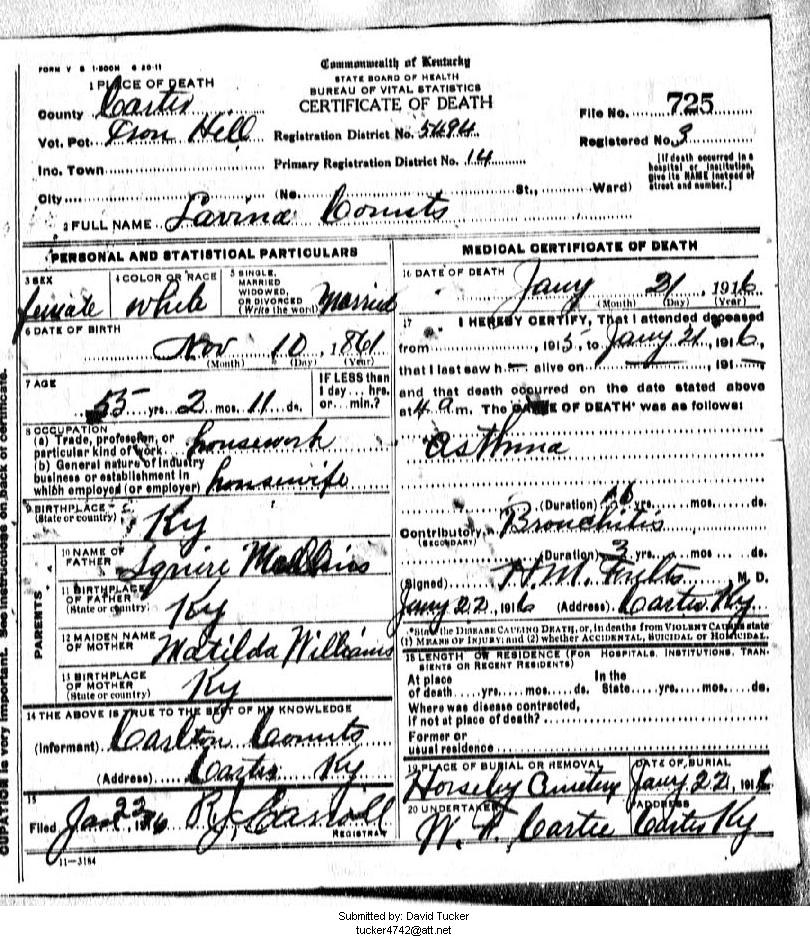 FORM V S 1-500M 6 20-11
Commonwealth of Kentucky
STATE BOARD OF HEALTH
BUREAU OF VITAL STATISTICS
CERTIFICATE OF DEATH
1 PLACE OF DEATH
County Carter
Vot. Pct. Iron Hill
Inc. Town
City
Registration District No. 5494
Primary Registration District No. 14
(No. St., Ward)
File No. 725
Registered No. 3
[If death occurred in a
hospital or institution,
give its NAME instead of
street and number.]
2 FULL NAME Lavina Counts
PERSONAL AND STATISTICAL PARTICULARS
3 SEX female
4 COLOR OR RACE white
5 SINGLE,
MARRIED
WIDOWED,
OR DIVORCED
(Write the word) Married
6 DATE OF BIRTH
Nov 10, 1861
(Month) (Day) (Year)
7 AGE
55 yrs. 2 mos. 11 ds.
IF LESS than
1 day... hrs.
or... min.?
8 OCCUPATION
(a) Trade, profession, or
particular kind of work housework
(b) General nature of industry
business or establishment in
which employed (or employer) housewife
9 BIRTHPLACE
(State or country) Ky
PARENTS
10 NAME OF
FATHER Squire
11 BIRTHPLACE
OF FATHER
(State or country) Ky
12 MAIDEN NAME
OF MOTHER Matilda Williams
13 BIRTHPLACE
OF MOTHER
(State or country) Ky
14 THE ABOVE IS TRUE TO THE BEST OF MY KNOWLEDGE
(Informant) Carlton Counts
(Address) Carter Ky
15
Filed Jan 22, 1916 R J Carroll
REGISTRAR
11-3184
MEDICAL CERTIFICATE OF DEATH
16 DATE OF DEATH
Jany 21, 1916
(Month) (Day) (Year)
17 I HEREBY CERTIFY, That I attended deceased
from , 1915, to Jany 21, 1916,
that I last saw h alive on , 191
and that death occurred on the date stated above
at 4 a m. The CAUSE OF DEATH* was as follows:
Asthma
(Duration) yrs. mos. ds.
Contributory Bronchitis
(SECONDARY)
(Duration) 3 yrs. mos. ds.
(Signed) H. M. , M. D.
Jany 22, 1916 (Address) Carter Ky
*State the DISEASE CAUSING DEATH, or, in deaths from VIOLENT CAUSES state
(1) MEANS OF INJURY; and (2) whether ACCIDENTAL, SUICIDAL or HOMICIDAL.
18 LENGTH OF RESIDENCE (FOR HOSPITALS, INSTITUTIONS, TRAN-
SIENTS OR RECENT RESIDENTS)
At place In the
of death yrs. mos. ds. State yrs. mos. ds.
Where was disease contracted,
if not at place of death?
Former or
usual residence
19 PLACE OF BURIAL OR REMOVAL
Cemetery
DATE OF BURIAL
Jany 22, 1916
20 UNDERTAKER
ADDRESS
Carter Ky
CUPATION is very important. See instructions on back of certificate.
Submitted by: David Tucker
tucker4742@att.net